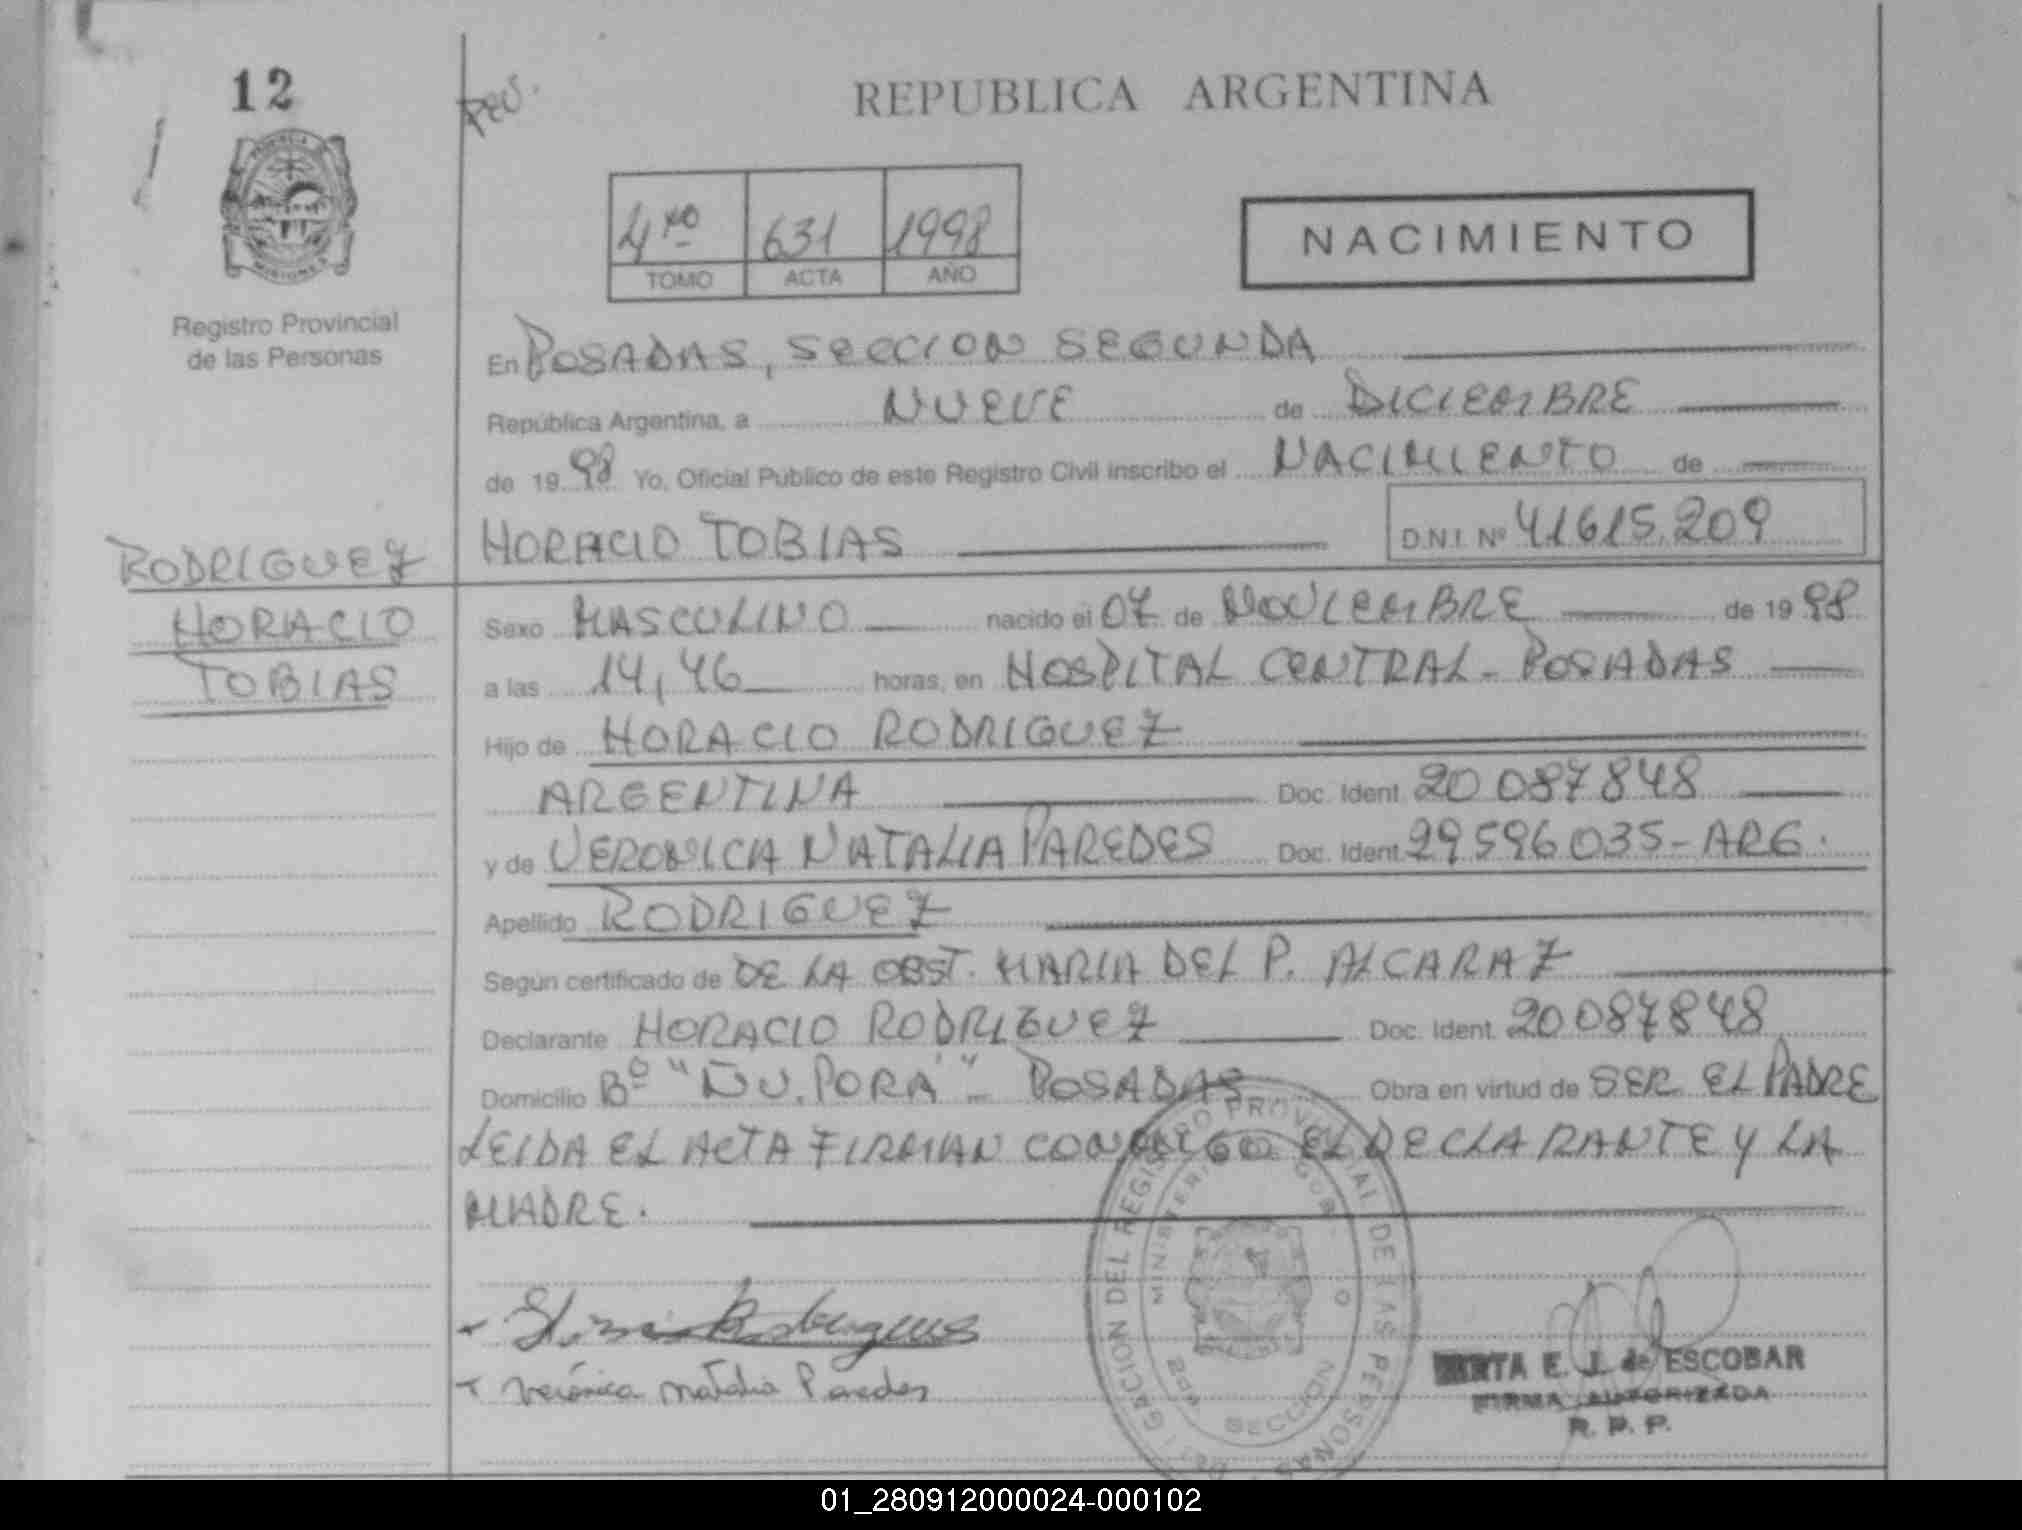 12
Rev.
REPUBLICA ARGENTINA
4to 631 1998
TOMO ACTA AÑO
NACIMIENTO
Registro Provincial
de las Personas
En POSADAS, SECCION SEGUNDA
República Argentina, a NUEVE de DICIEMBRE
de 1998 Yo, Oficial Público de este Registro Civil inscribo el NACIMIENTO de
HORACIO TOBIAS D.N.I. Nº 41615.209
RODRIGUEZ
HORACIO
TOBIAS
Sexo MASCULINO nacido el 07 de NOVIEMBRE de 1998
a las 14,46 horas, en HOSPITAL CENTRAL - POSADAS
Hijo de HORACIO RODRIGUEZ
ARGENTINA Doc. Ident. 20 087848
y de VERONICA NATALIA PAREDES Doc. Ident. 29596035-ARG.
Apellido RODRIGUEZ
Según certificado de DE LA OBST. MARIA DEL P. ALCARAZ
Declarante HORACIO RODRIGUEZ Doc. Ident. 20087848
Domicilio Bº "ÑU. PORA" - POSADAS Obra en virtud de SER EL PADRE
LEIDA EL ACTA FIRMAN CONMIGO EL DECLARANTE Y LA
MADRE.
Verónica Natalia Paredes
DEL REGISTRO PROVINCIAL DE LAS PERSONAS
MINISTERIO GOB.
SECCION
E. J. de ESCOBAR
FIRMA AUTORIZADA
R. P. P.
01_280912000024-000102